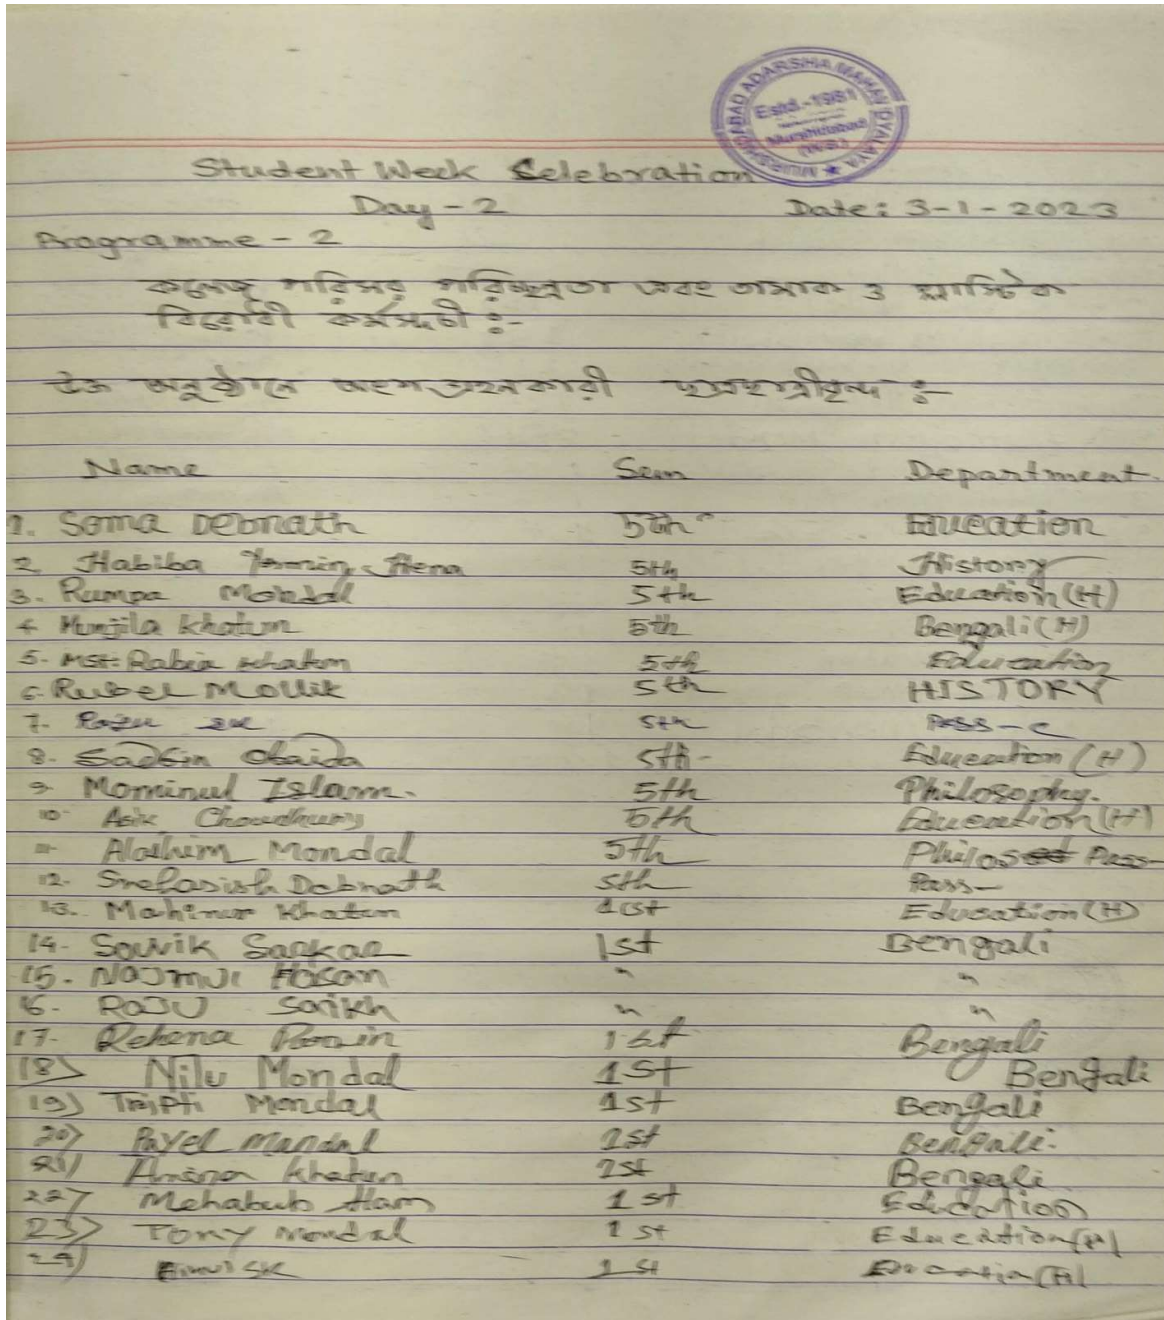 MURSHIDABAD ADARSHA MAHAVIDYALAYA
Estd.-1981
Murshidabad
(W.B.)
Student Week Celebration
Day - 2 Date: 3-1-2023
Programme - 2
কলেজ পরিসর পরিচ্ছন্নতা এবং তামাক ও প্লাস্টিক
বিরোধী কর্মসূচী :-
উক্ত অনুষ্ঠানে অংশগ্রহনকারী ছাত্রছাত্রীবৃন্দ :-
Name Sem Department.
1. Soma Debnath 5th Education
2. Habiba Hena 5th History
3. Rumpa Mondal 5th Education (H)
4 Munjila Khatun 5th Bengali (H)
5. Mst. Rabia Khatun 5th Education
6. Rubel Mollik 5th HISTORY
7. Raju SK 5th Pass - c
8. Obaida 5th - Education (H)
9. Mominul Islam. 5th Philosophy.
10. Asik Choudhury 5th Education (H)
11. Mondal 5th Pass
12. Snehasish Debnath 5th Pass -
13. Mahinur Khatun 1st Education (H)
14. Souvik Sarkar 1st Bengali
15. Najmul Hasan " "
16. Raju Saikh " "
17. Rehena 1st Bengali
18) Nilu Mondal 1st Bengali
19) Tripti Mondal 1st Bengali
20) Payel Mandal 1st Bengali.
21) Amina Khatun 1st Bengali
22) Mehabub Alam 1st Education
23) Tony Mondal 1st Education (H)
24) SK 1st Education (H)